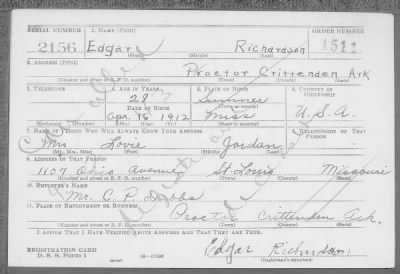 SERIAL NUMBER 1. NAME (Print) ORDER NUMBER
2156 Edgar Richardson 1511
(First) (Middle) (Last)
2. ADDRESS (Print)
Proctor Crittenden Ark
(Number and street or R. F. D. number) (Town) (County) (State)
3. TELEPHONE 4. AGE IN YEARS 5. PLACE OF BIRTH 6. COUNTRY OF CITIZENSHIP
28 Sumner
DATE OF BIRTH
Apr. 16 1912 Miss U.S.A.
(Mo.) (Day) (Yr.)
7. NAME OF PERSON WHO WILL ALWAYS KNOW YOUR ADDRESS 8. RELATIONSHIP OF THAT PERSON
Mrs Lovie Jordan
(Mr., Mrs., Miss) (First) (Middle) (Last)
9. ADDRESS OF THAT PERSON
1107 Ohio Avenue St Louis Missouri
(Number and street or R. F. D. number) (Town) (County) (State)
10. EMPLOYER'S NAME
Mr. C. P.
11. PLACE OF EMPLOYMENT OR BUSINESS
Proctor Crittenden Ark.
(Number and street or R. F. D. number) (Town) (County) (State)
I AFFIRM THAT I HAVE VERIFIED ABOVE ANSWERS AND THAT THEY ARE TRUE.
REGISTRATION CARD
D. S. S. FORM 1 16-17105 Edgar Richardson
(Registrant's signature)
Cancelled